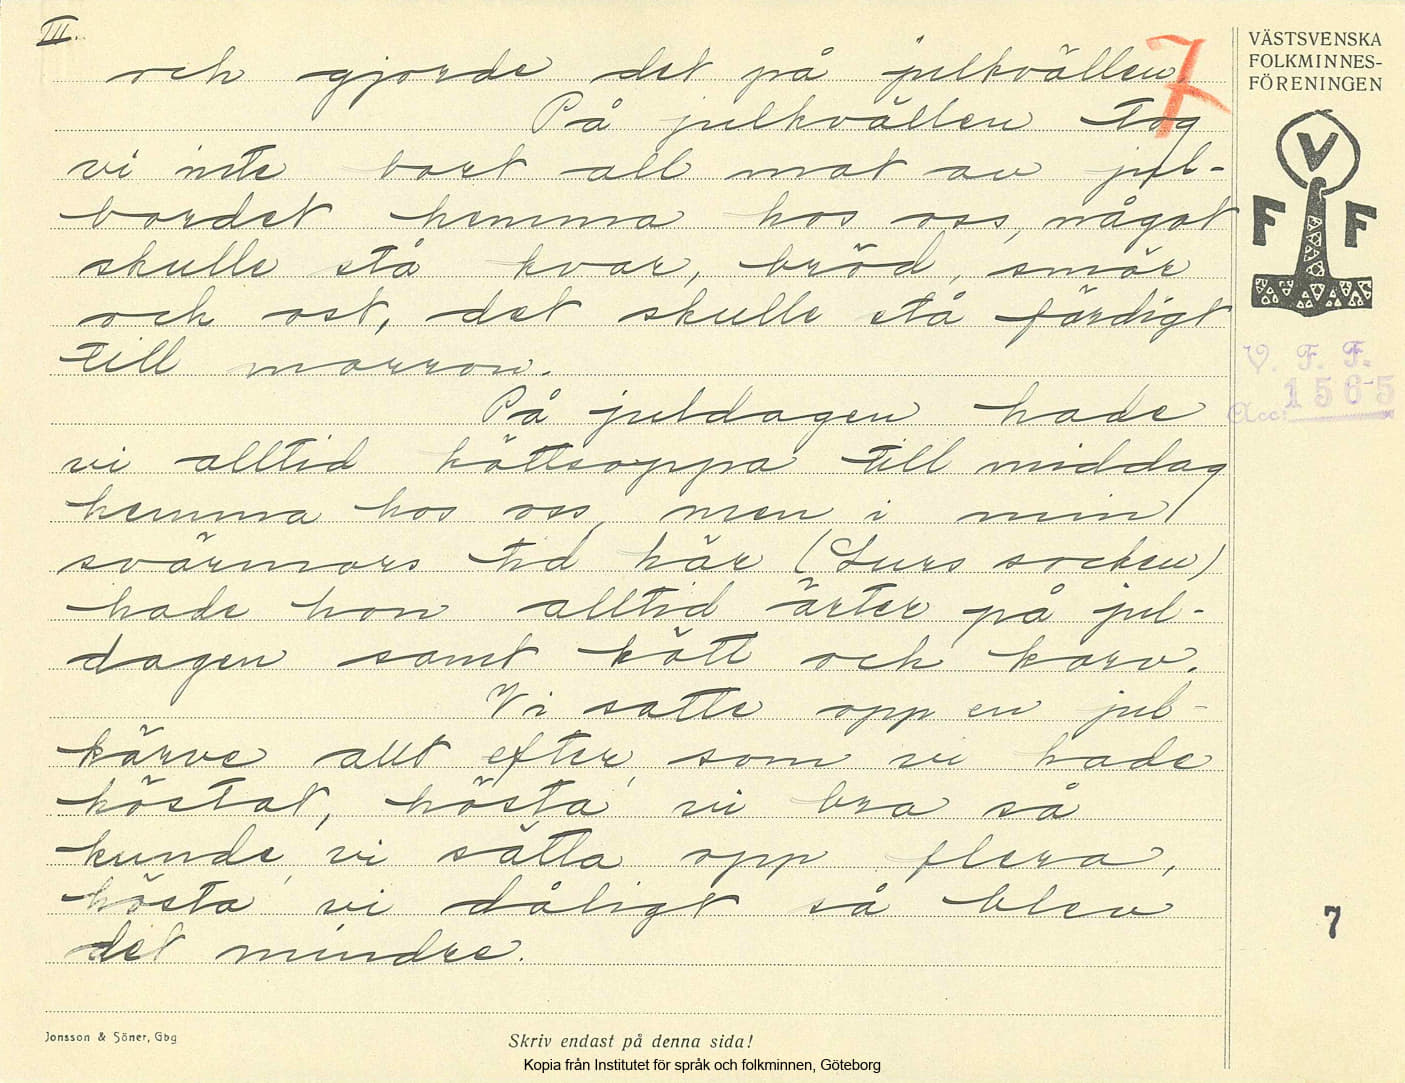 III.
7
och gjorde det på julkvällen.
På julkvällen tog
vi inte bort all mat av jul-
bordet hemma hos oss, något
skulle stå kvar, bröd, smör
och ost, det skulle stå färdigt
till morron.
På juldagen hade
vi alltid köttsoppa till middag
hemma hos oss, men i min
svärmors tid här (Lurs socken)
hade hon alltid ärter på jul-
dagen samt kött och korv.
Vi satte opp en jul-
kärve allt efter som vi hade
höstat, hösta' vi bra så
kunde vi sätta opp flera,
hösta' vi dåligt så blev
det mindre.
VÄSTSVENSKA
FOLKMINNES-
FÖRENINGEN
V
F F
V. F. F.
Acc: 1565
7
Jonsson & Söner, Gbg
Skriv endast på denna sida!
Kopia från Institutet för språk och folkminnen, Göteborg